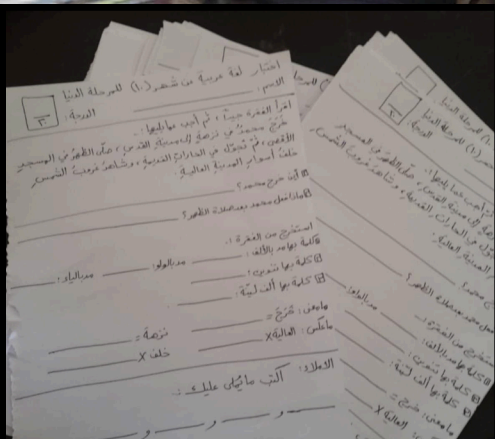 اختبار لغة عربية من شهر (١٠) للمرحلة الدنيا
الاسم: الدرجة:
اقرأ الفقرة جيداً، ثم أجب عما يليها:
خرج محمد في نزهة إلى مدينة القدس، صلّى الظهر في المسجد
الأقصى، ثم تجوّل في الحارات القديمة، وشاهد غروب الشمس
خلف أسوار المدينة العالية.
أين خرج محمد؟
ماذا فعل محمد بعد صلاة الظهر؟
استخرج من الفقرة:
كلمة بها مد بالألف: مد بالواو: مد بالياء:
كلمة بها تنوين:
كلمة بها ألف لينة:
ما معنى: خرج = نزهة =
ما عكس: العالية x خلف x
الاملاء: أكتب ما يملى عليك: